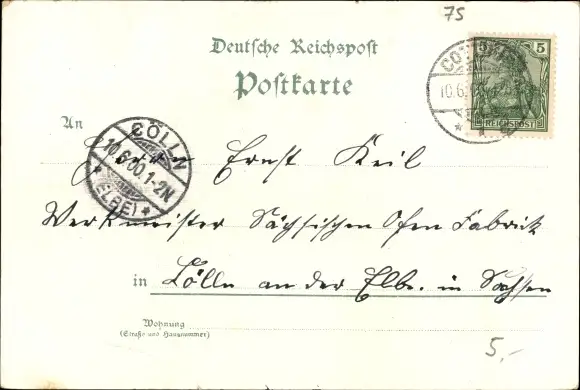 75
Deutsche Reichspost
Postkarte
5 5
REICHSPOST
10.6.
An Herrn Ernst Keil
CÖLLN
10.6.00.1-2N
(ELBE)
Werkmeister Sächsischen Ofen Fabrick
in Cölln an der Elbe. in Sachsen
Wohnung
(Straße und Hausnummer)
5,-